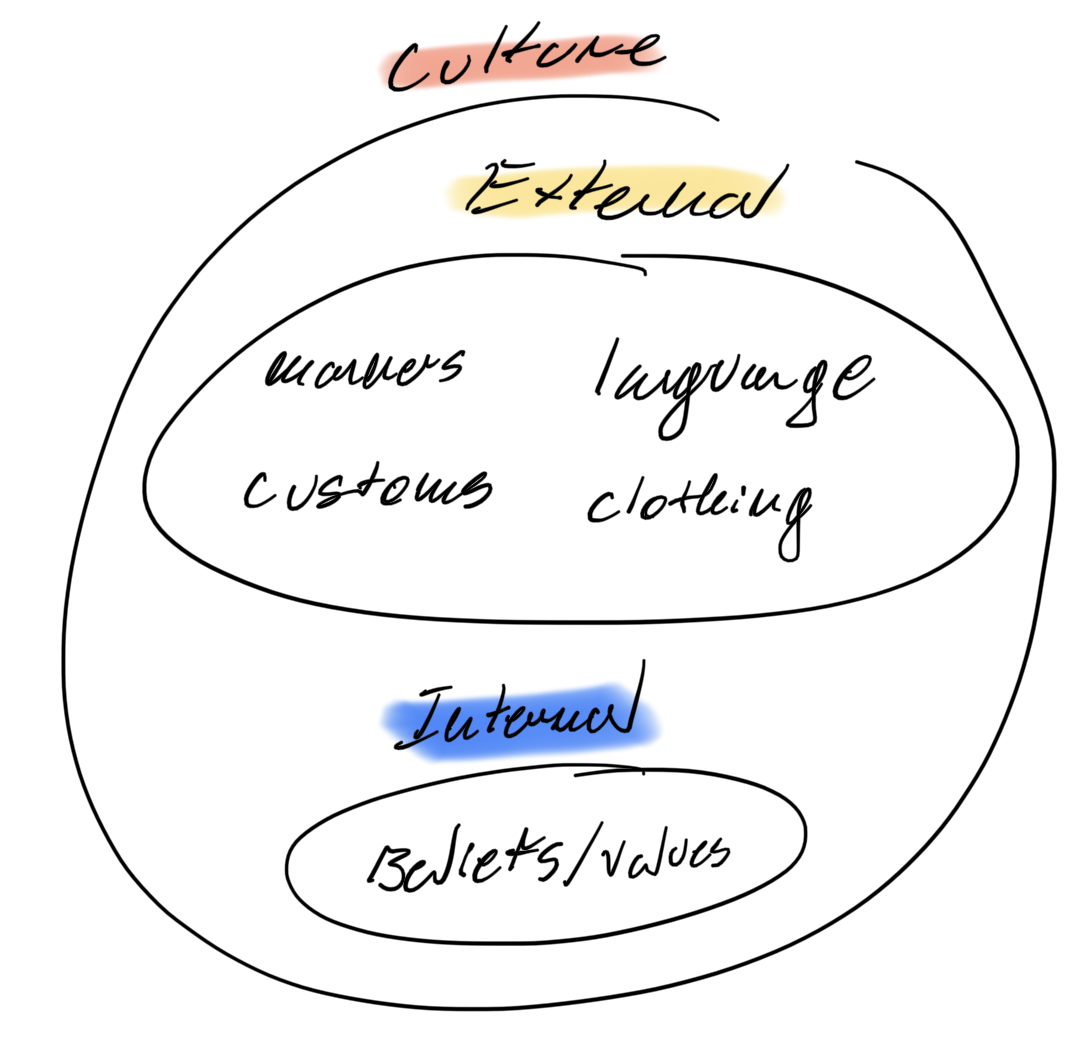 Culture
External
manners language
customs clothing
Internal
Beliefs/values